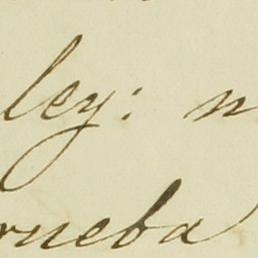 ley: n
rueba